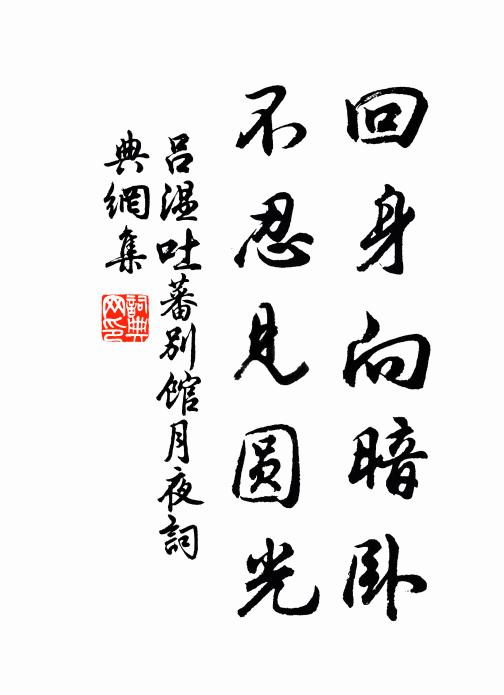 回身向暗卧
不忍見圆光
吕温吐蕃别館月夜詞
典網集
詞典
网印